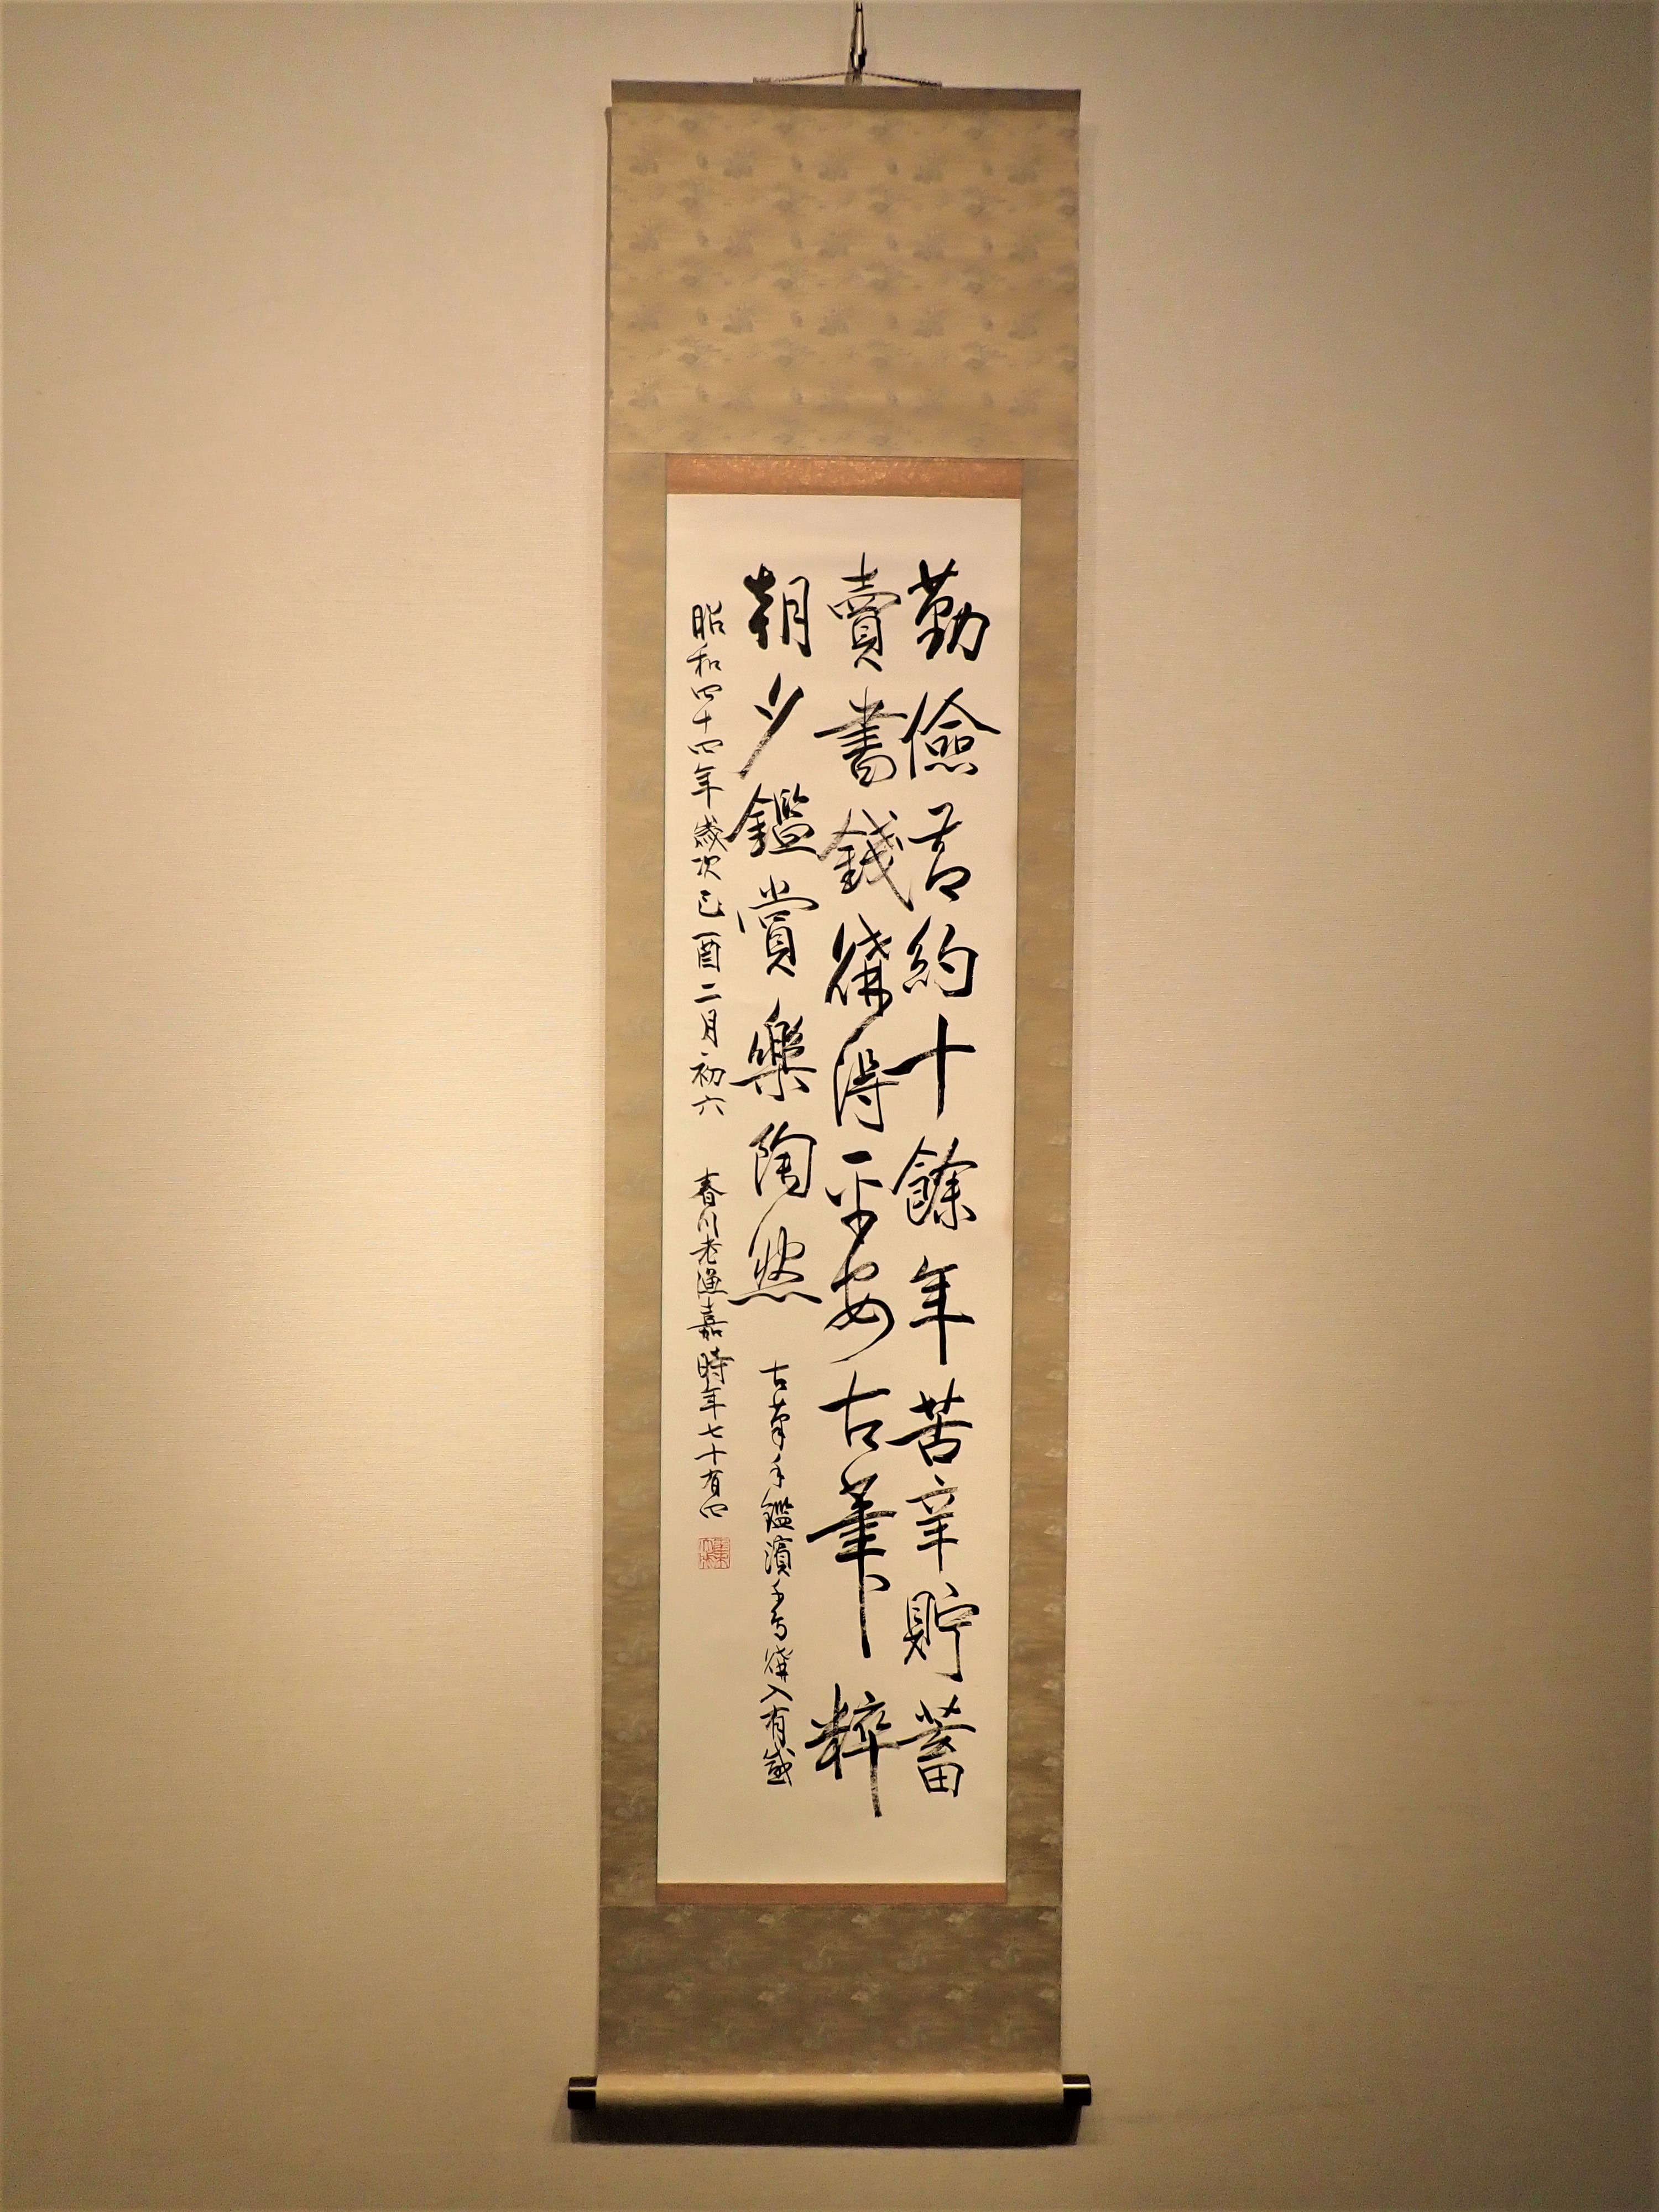 勤儉苦約十餘年苦辛貯蓄
賣書錢購得平安古筆粹
朝夕鑑賞樂陶然
古筆手鑑濱千鳥購入有感
昭和四十四年歲次己酉二月初六
春川老漁嘉時年七十有四